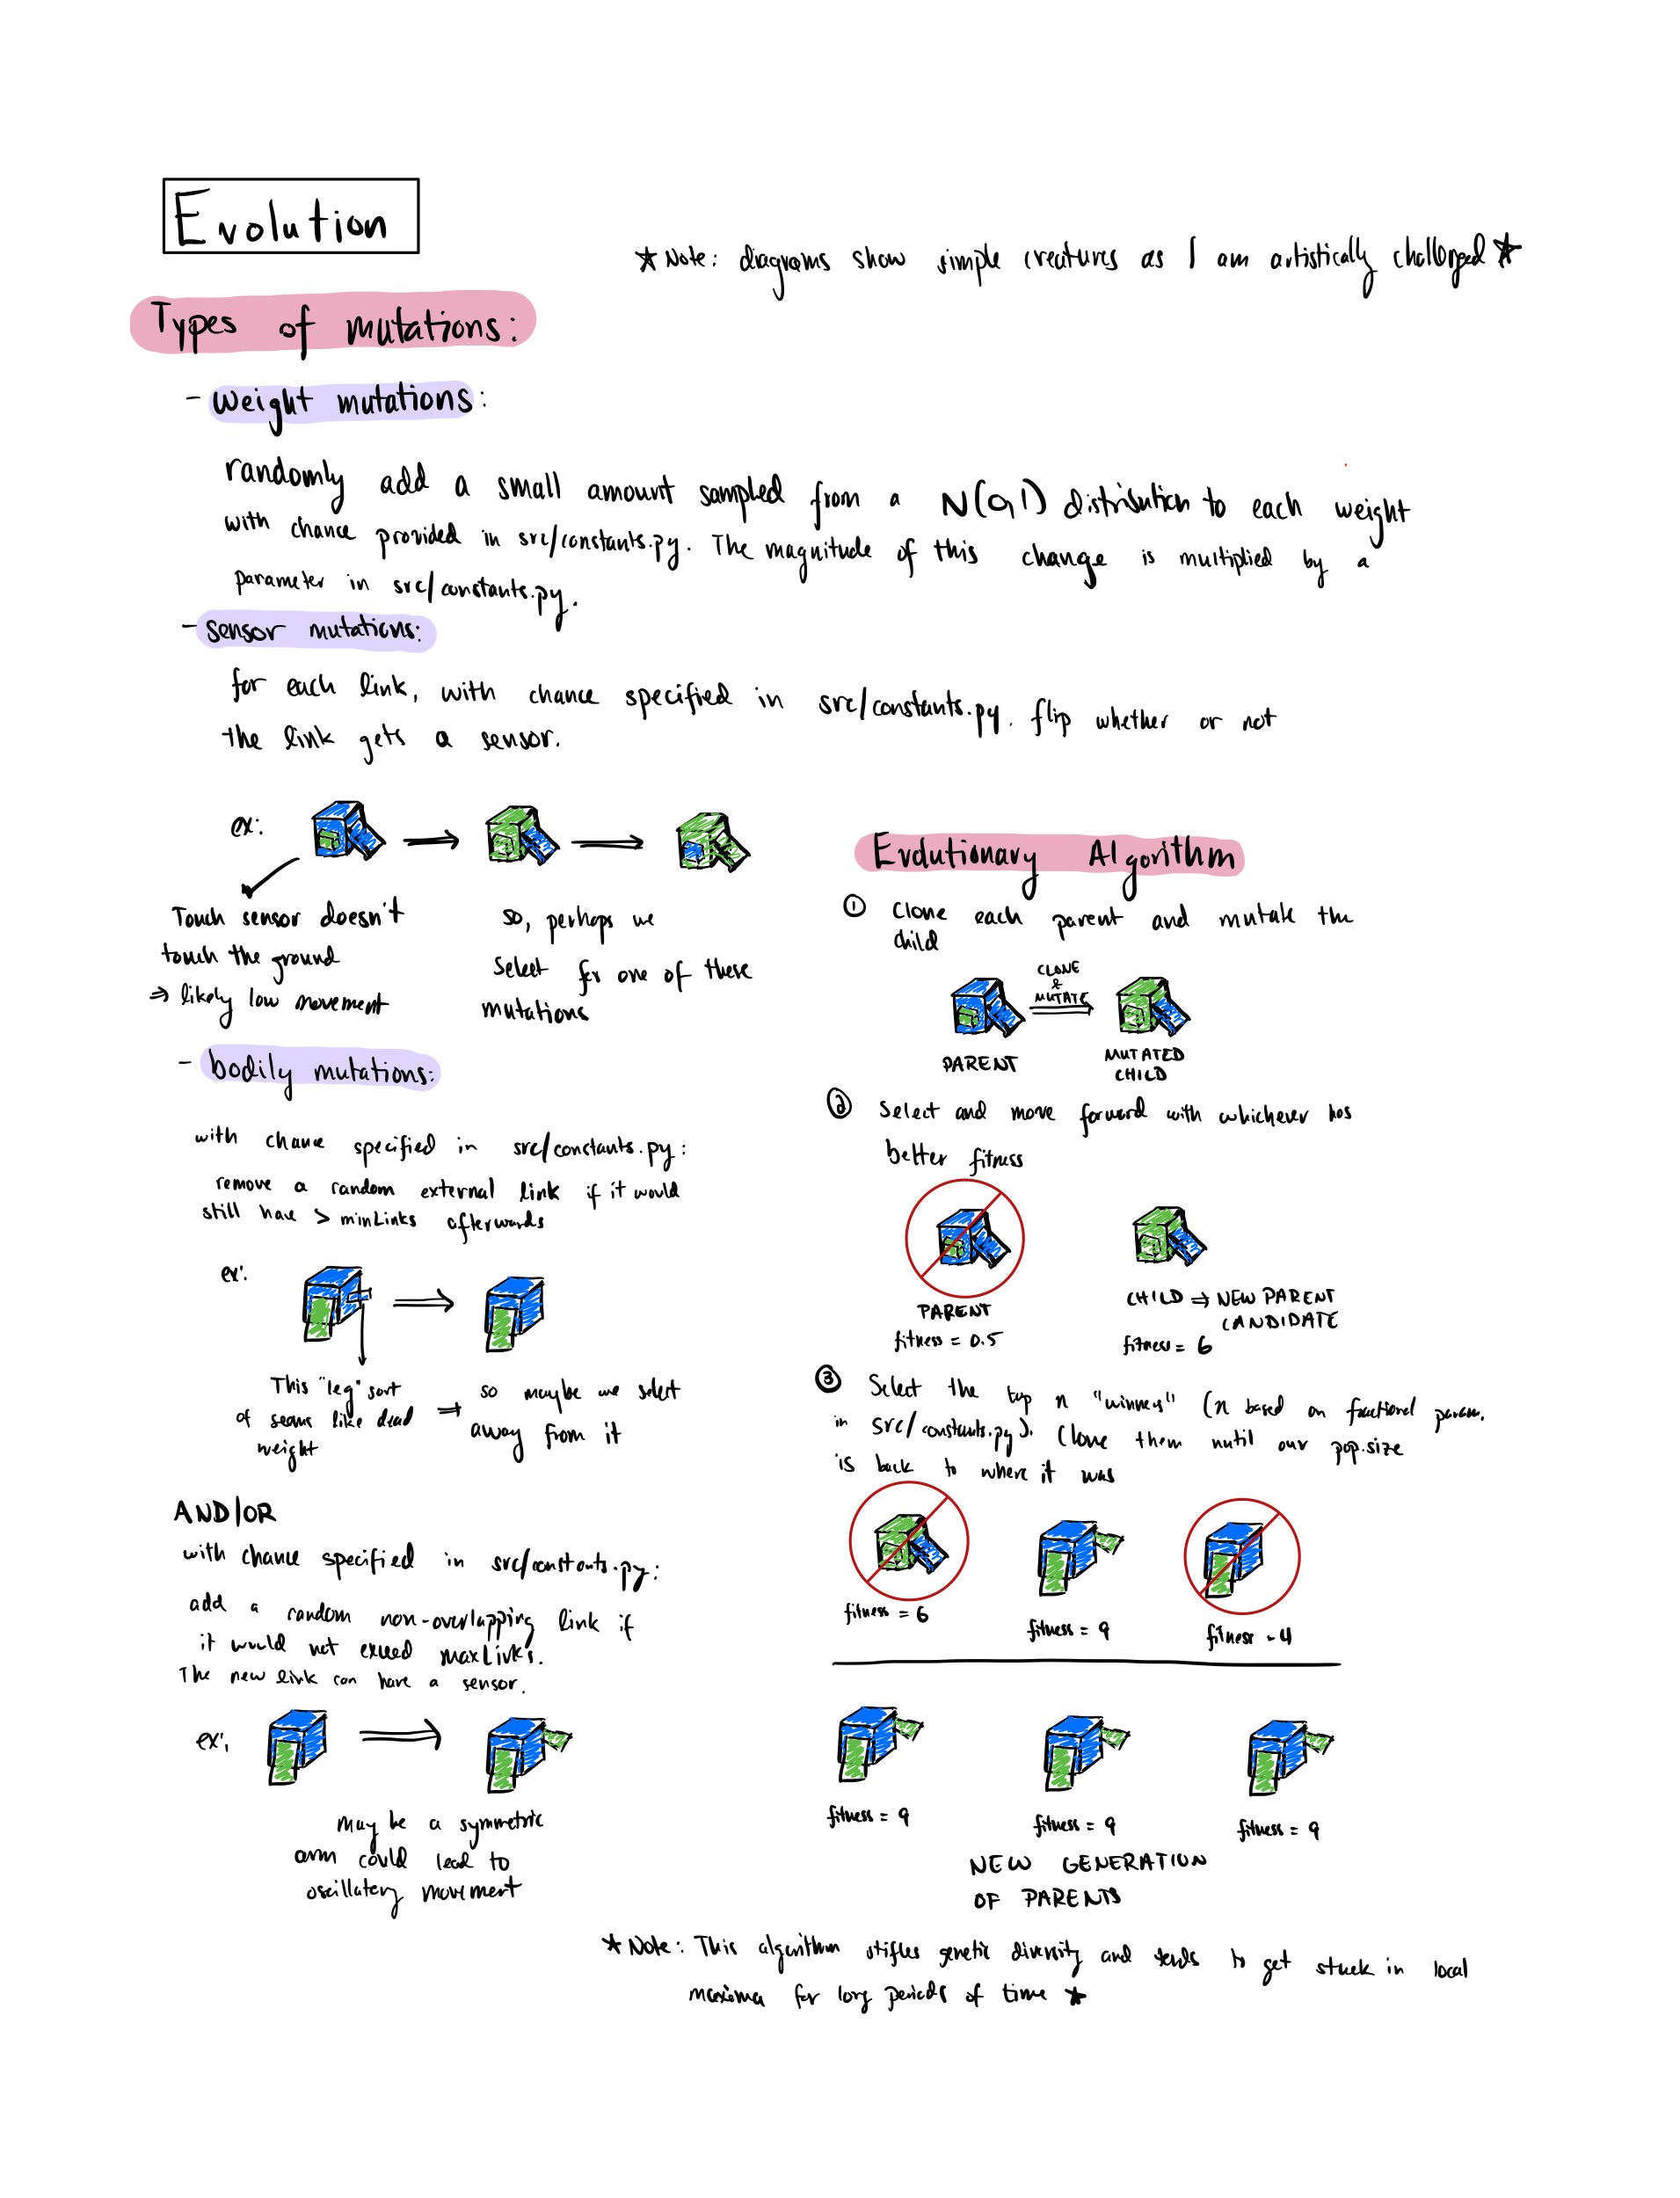 Evolution
★ Note: diagrams show simple creatures as I am artistically challenged ★
Types of mutations:
- weight mutations:
randomly add a small amount sampled from a N(0,1) distribution to each weight
with chance provided in src/constants.py. The magnitude of this change is multiplied by a
parameter in src/constants.py.
- sensor mutations:
for each link, with chance specified in src/constants.py. flip whether or not
the link gets a sensor.
ex:
Touch sensor doesn't
touch the ground
⇒ likely low movement
so, perhaps we
select for one of these
mutations
- bodily mutations:
with chance specified in src/constants.py:
remove a random external link if it would
still have > minLinks afterwards
ex:
This "leg" sort
of seems like dead
weight
⇒ so maybe we select
away from it
AND/OR
with chance specified in src/constants.py:
add a random non-overlapping link if
it would not exceed maxLinks.
The new link can have a sensor.
ex:
may be a symmetric
arm could lead to
oscillatory movement
Evolutionary Algorithm
① Clone each parent and mutate the
child
CLONE
&
MUTATE
PARENT
MUTATED
CHILD
② Select and move forward with whichever has
better fitness
PARENT
fitness = 0.5
CHILD ⇒ NEW PARENT
CANDIDATE
fitness = 6
③ Select the top n "winners" (n based on fractional param.
in src/constants.py). Clone them until our pop.size
is back to where it was
fitness = 6
fitness = 9
fitness = 4
fitness = 9
fitness = 9
fitness = 9
NEW GENERATION
OF PARENTS
★ Note: This algorithm stifles genetic diversity and tends to get stuck in local
maxima for long periods of time ★